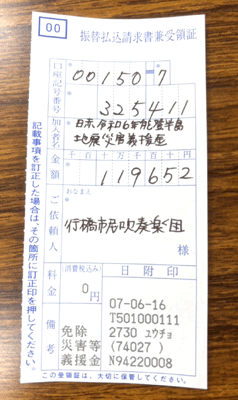 00
振替払込請求書兼受領証
口座記号番号
00150 7
325411
加入者名
日赤 令和6年能登半島
地震災害義援金
金額
千 百 十 万 千 百 十 円
119652
ご依頼人
おなまえ
行橋市民吹奏楽団
様
料金
(消費税込み)
0円
日附印
備考
07-06-16
T501000111
免除 2730 ユウチョ
災害等 (74027)
義援金 N94220008
記載事項を訂正した場合は、その箇所に訂正印を押してください。
この受領証は、大切に保管してください。